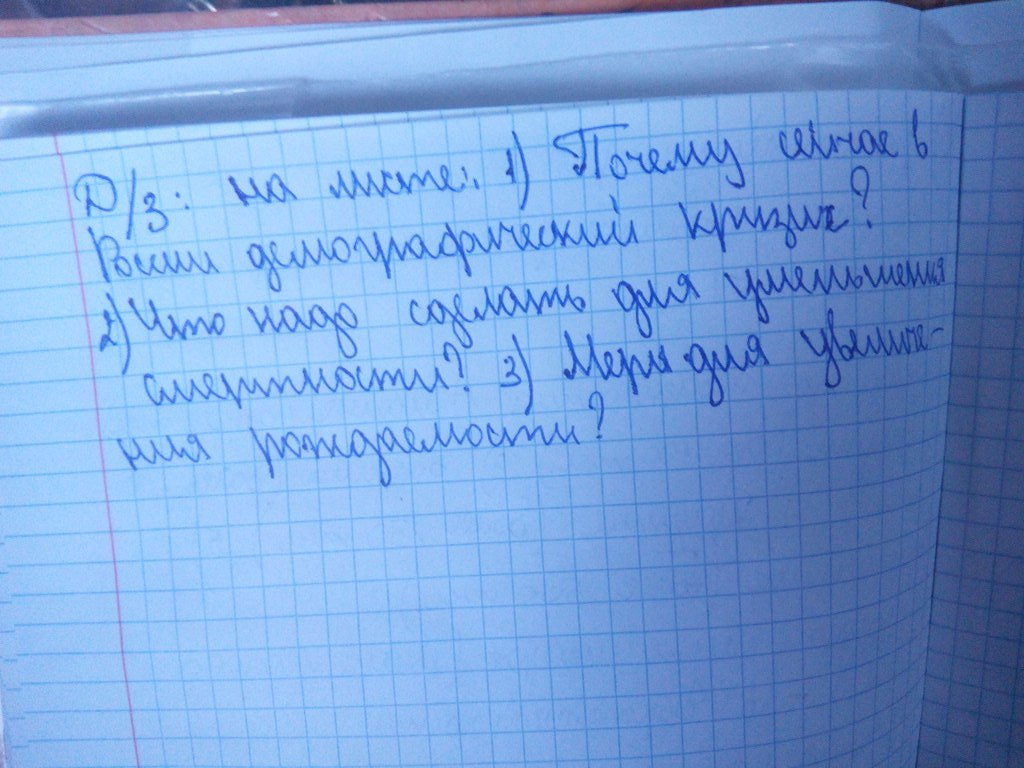 Д/З: на листе:. 1) Почему сейчас в
России демографический кризис?
2) Что надо сделать для уменьшения
смертности? 3) Меры для увеличе-
ния рождаемости?